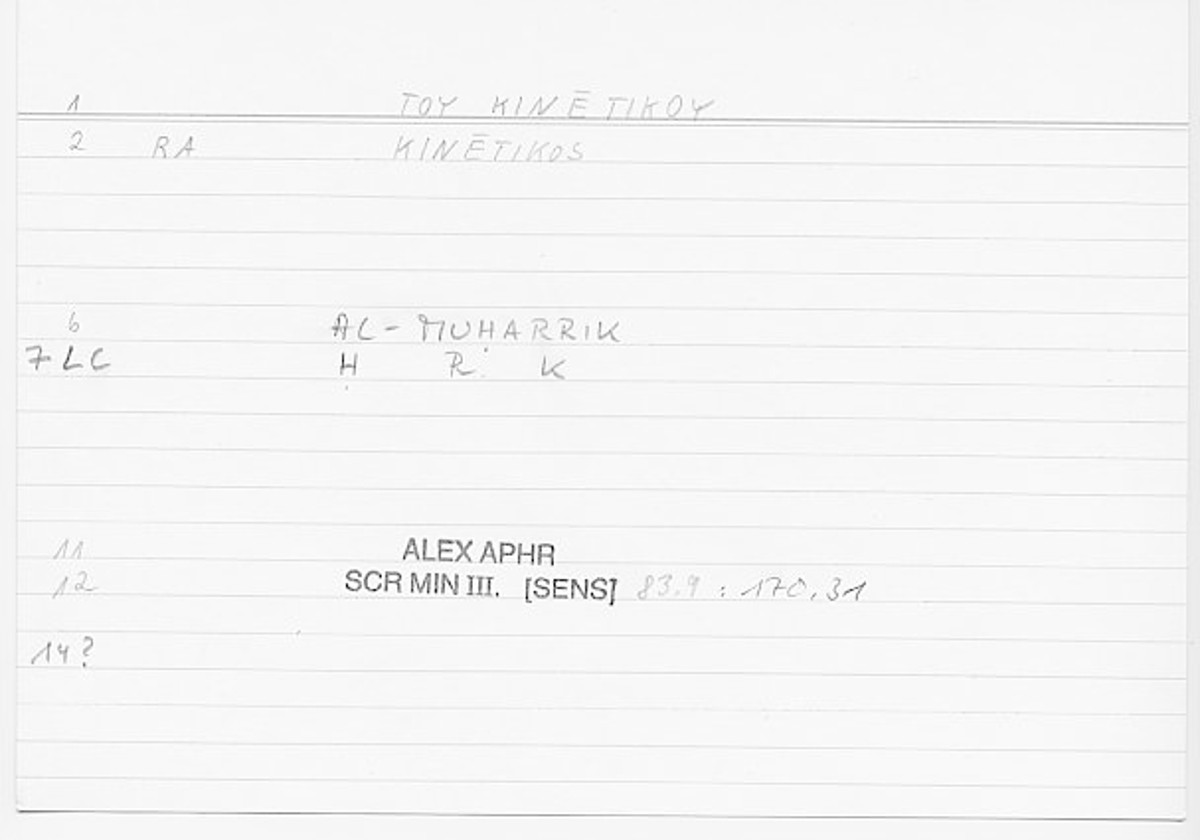 1 TOY KINĒTIKOY
2 RA KINĒTIKOS
6 AL-MUḤARRIK
7 LC Ḥ R K
11 ALEX APHR
12 SCR MIN III. [SENS] 83.9 : 170.31
14?